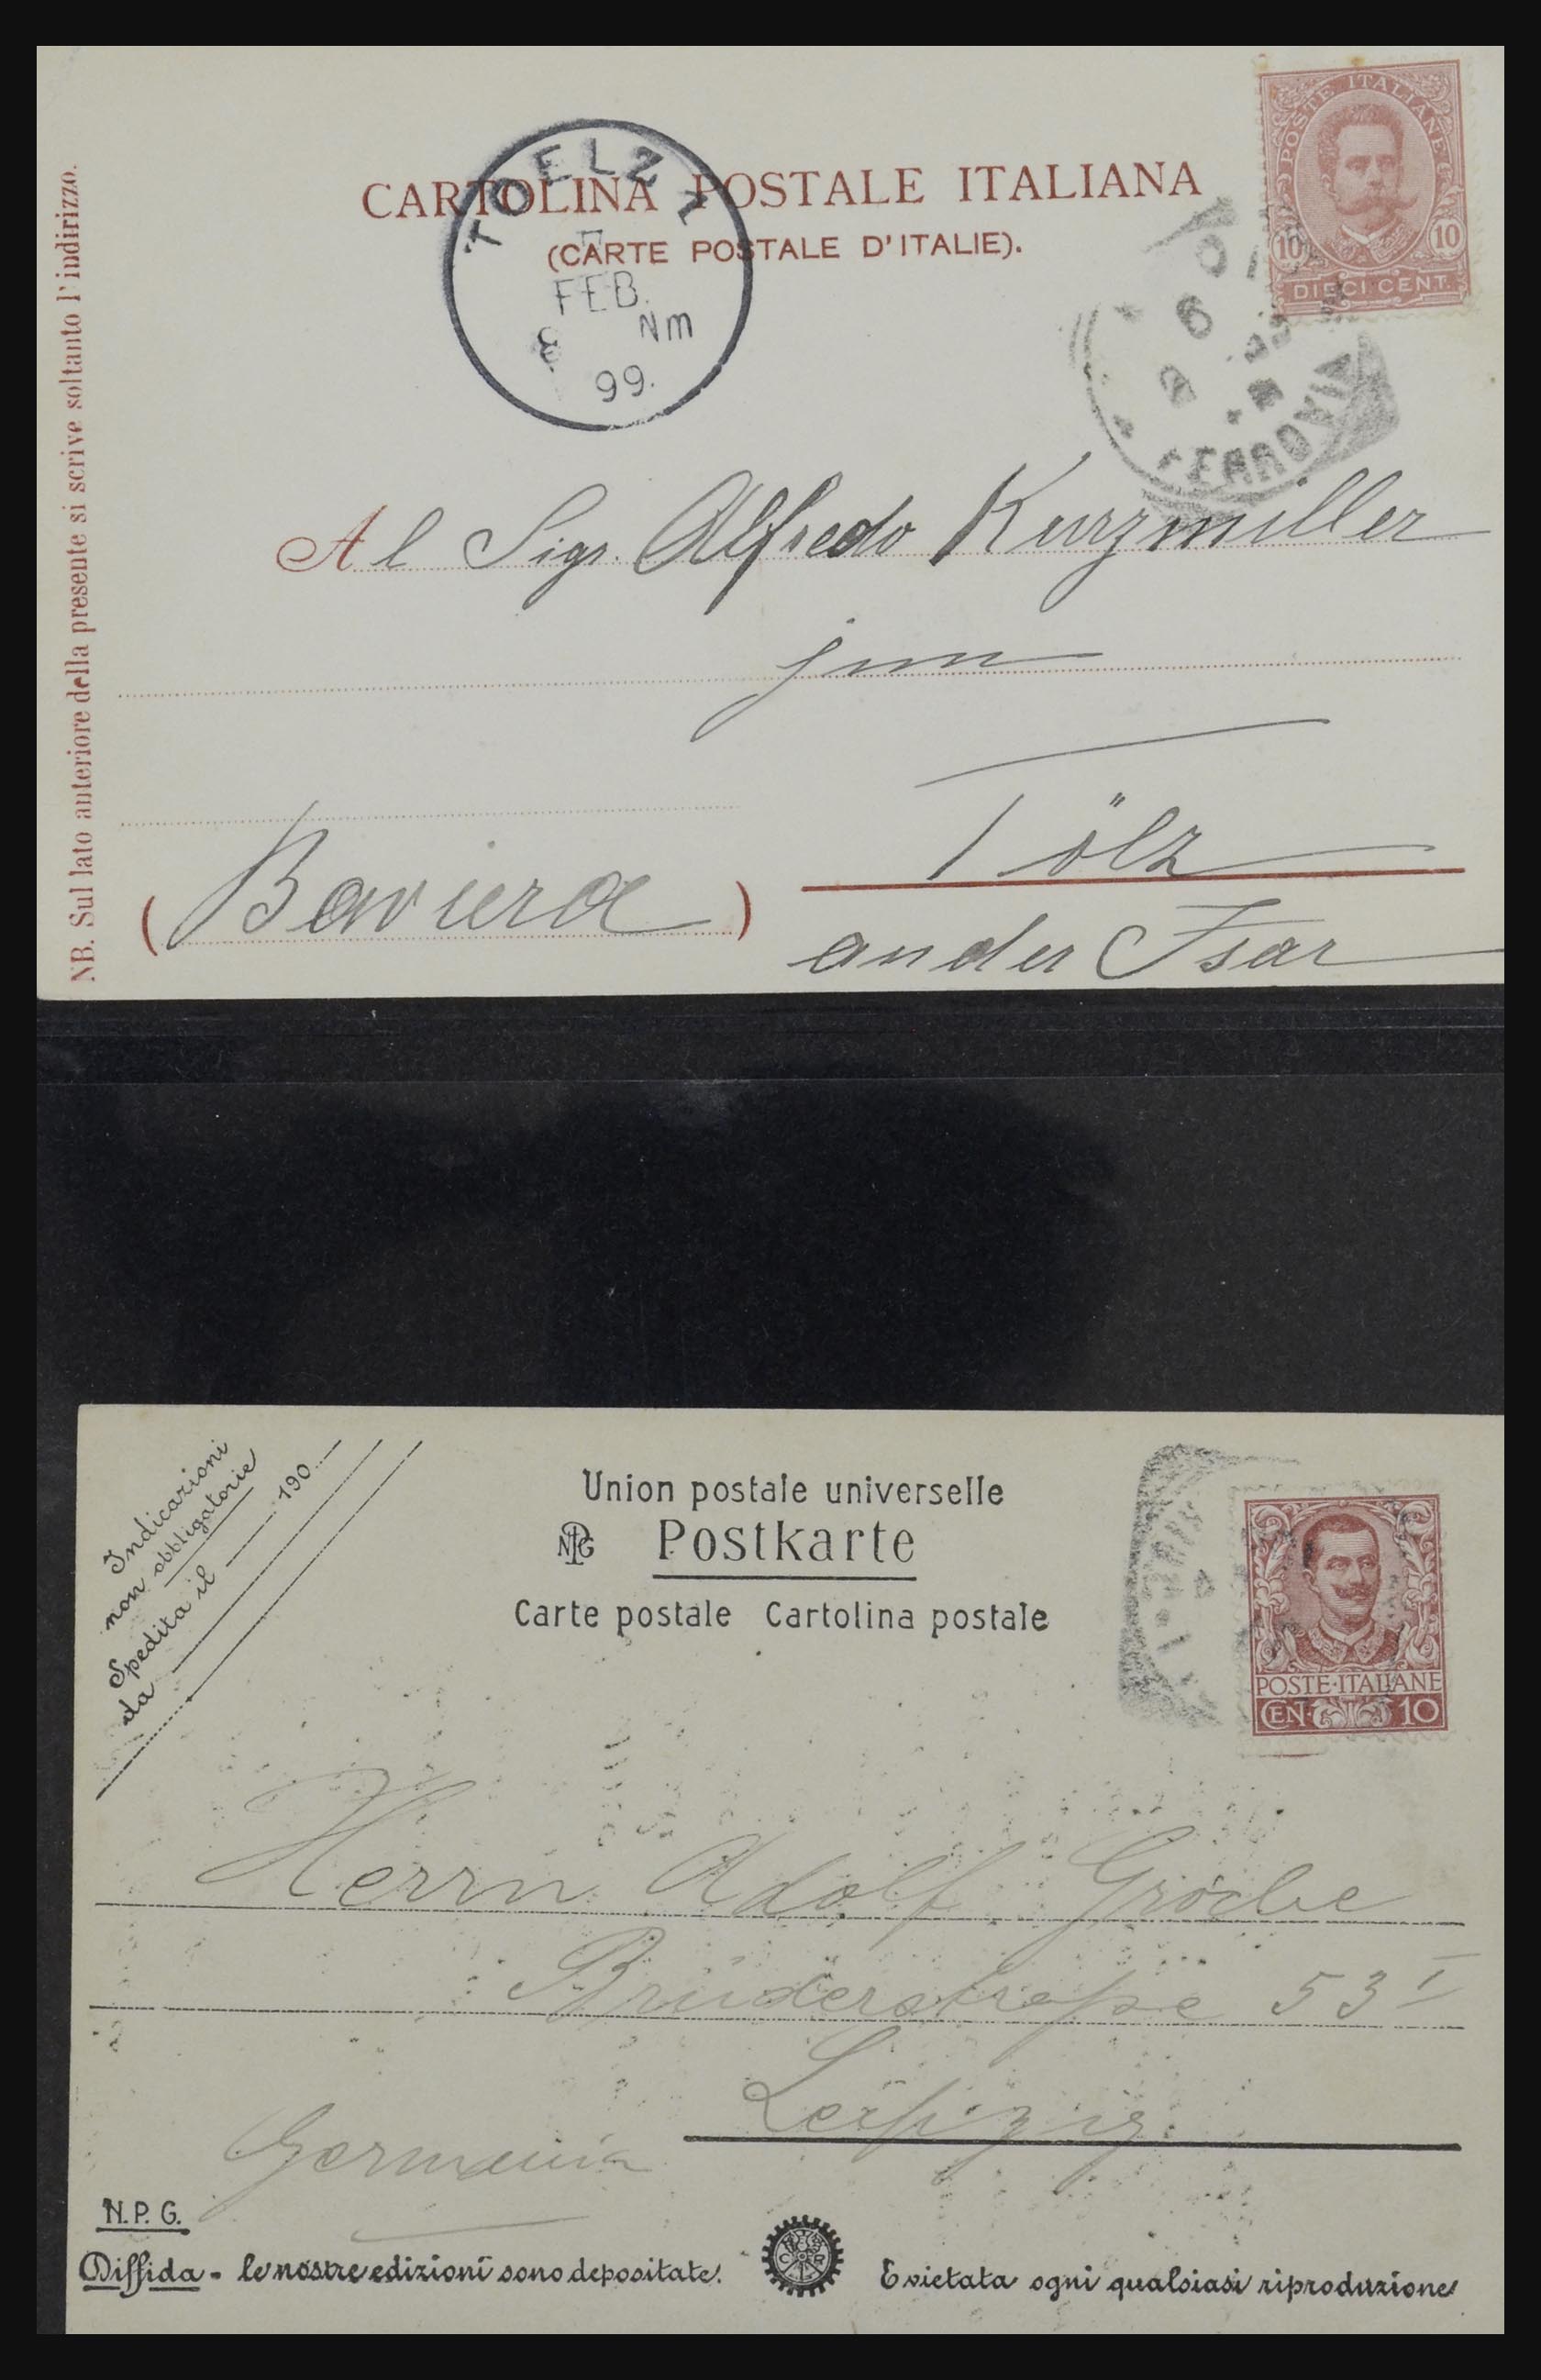 NB. Sul lato anteriore della presente si scrive soltanto l'indirizzo.
CARTOLINA POSTALE ITALIANA
(CARTE POSTALE D'ITALIE).
TOELZ
FEB.
8 Nm
99.
POSTE ITALIANE
10 10
DIECI CENT.
6
2
FERROVIA
Al Sigr. Alfredo Kurzmiller
jun
Tölz
(Baviera)
an der Isar
Indicazioni
non obbligatorie
Spedita il 190
da
Union postale universelle
NPG Postkarte
Carte postale Cartolina postale
POSTE·ITALIANE
CEN· 10
Herrn Adolf
Brüderstraße 53 I
Leipzig
Germania
N.P.G.
Diffida - le nostre edizioni sono depositate.
E vietata ogni qualsiasi riproduzione